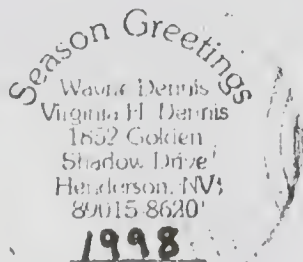 Season Greetings
Wayne Dennis
Virginia H. Dennis
1852 Golden
Shadow Drive
Henderson, NV
89015-8620
1998